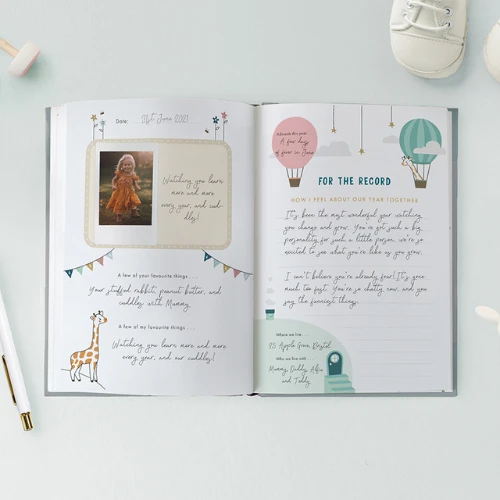 Date: 21st June 2021
Watching you learn
more and more
every year, and cud-
dly!
A few of your favourite things . . .
Your stuffed rabbit, peanut butter, and
cuddly with Mummy.
A few of my favourite things . . .
Watching you learn more and more
every year, and our cuddly!
A few days
of four in June
FOR THE RECORD
HOW I FEEL ABOUT OUR YEAR TOGETHER
It's been the most wonderful year watching
you change and grow. You've got such a big
personality for such a little person, we're so
excited to see what you're like as you grow.
I can't believe you're already four! It's gone
much too fast. You're so chatty now, and you
say the funniest things.
Where we live . . .
Apple Grove, Bristol
Who we live with . . .
Mummy, Daddy, Alfie
and Teddy.